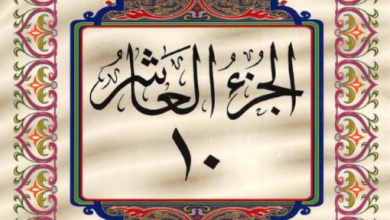 الجزء العاشر
١٠